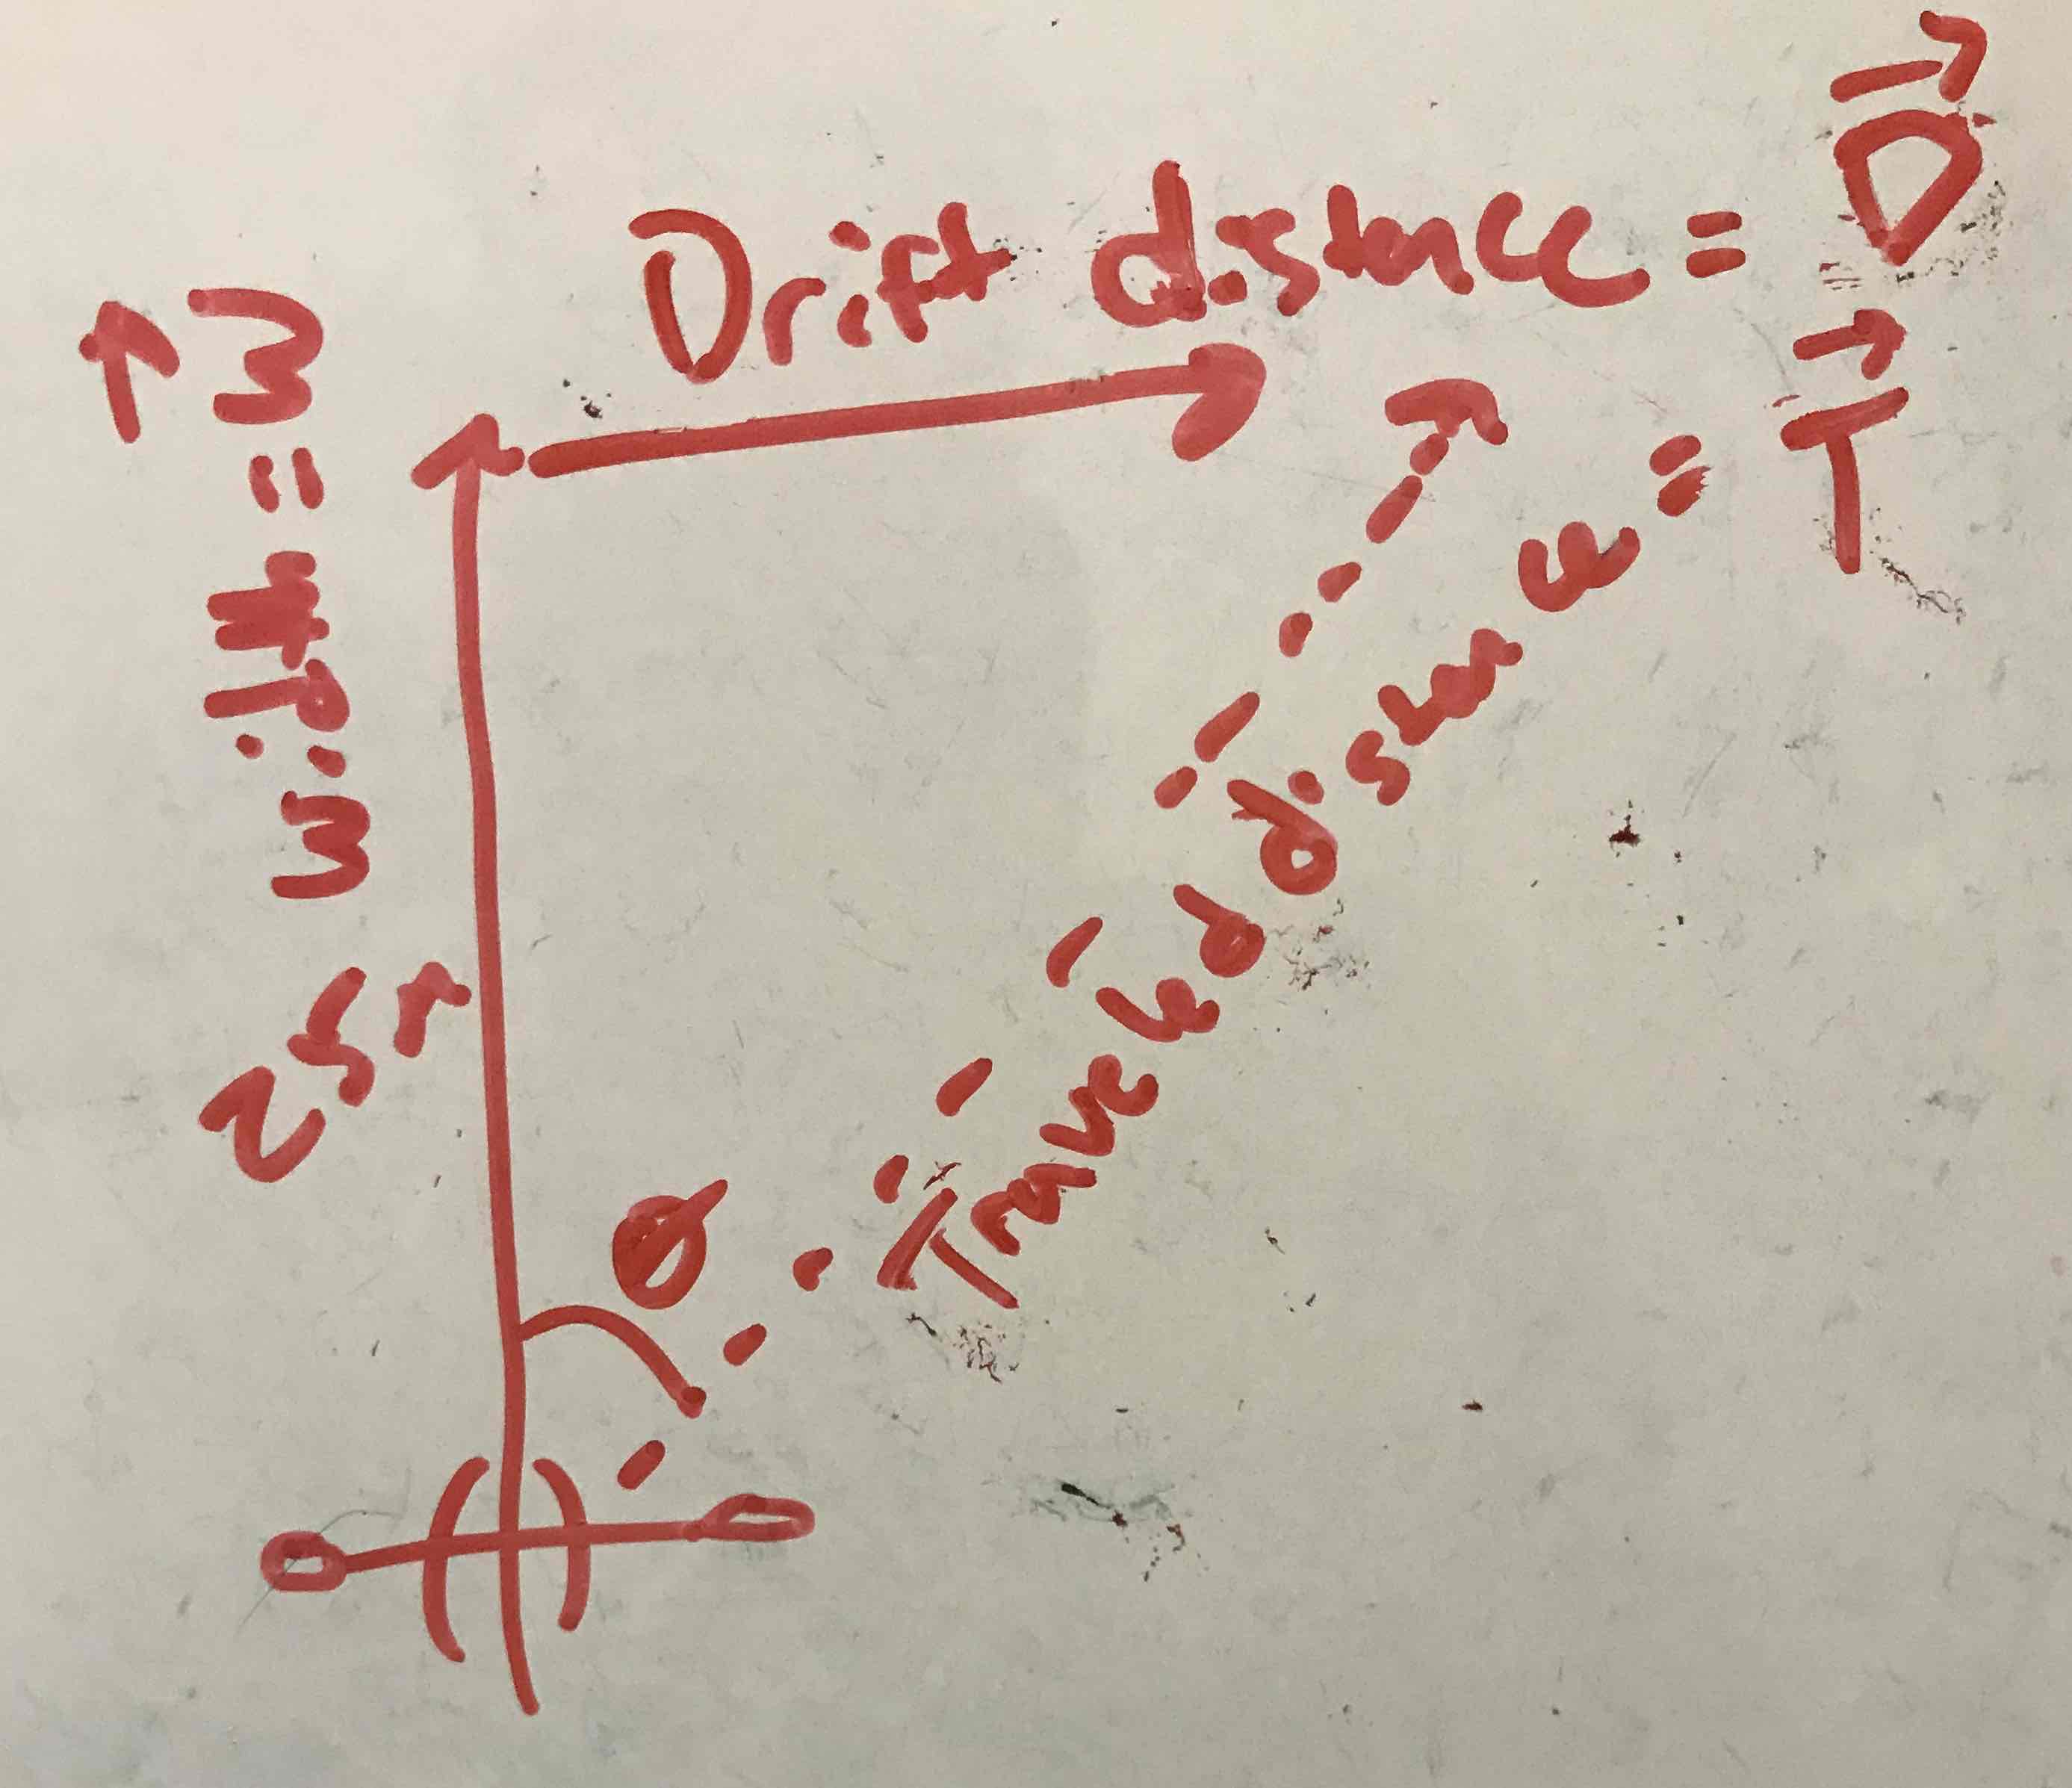 Drift distance = D
Width = W
25m
Traveled distance = T
θ